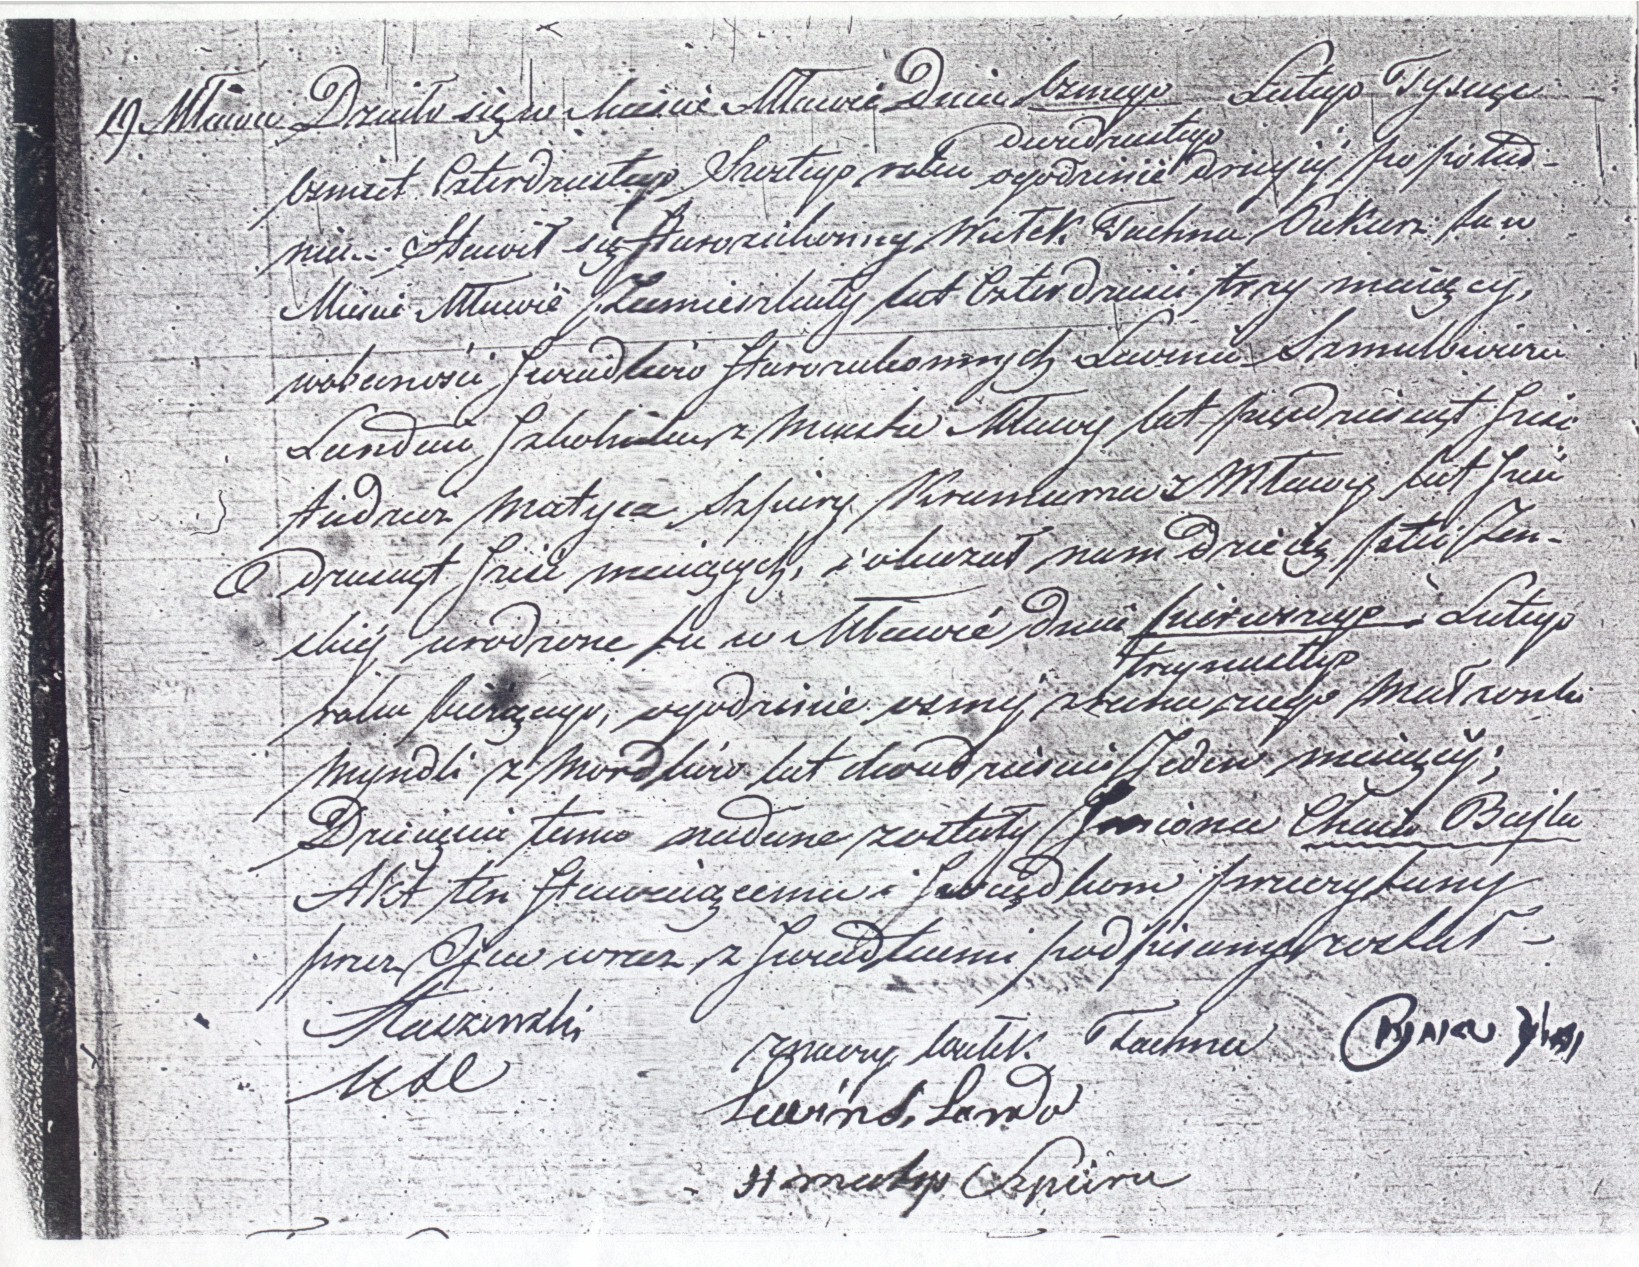 19 Mława Działo się w Mieście Mławie Dnia ósmego Lutego Tysiąc
dwudziestego
ośmset Czterdziestego Szóstego roku o godzinie drugiej po połud-
niu. Stawił się Starozakonny Wulek Tachna Piekarz tu w
Mieście Mławie Zamieszkały lat Czterdzieści trzy mający,
w obecności Świadków Starozakonnych Lewina Szmulowicza
Landau Szkolnika z Miasta Mławy lat pięćdziesiąt sześć
tudzież Matysa Szpiry Kramarza z Mławy lat sześć
dziesiąt sześć mających, i okazał nam dziecię płci Żeń-
skiej urodzone tu w Mławie dnia pierwszego Lutego
trzynastego
roku bieżącego, o godzinie ósmej z rana z jego Małżonki
Myndli z Mordków lat dwadzieścia Jeden mającej;
Dziecięciu temu nadane zostały Imiona Chaia Bajla
Akt ten Stawiającemu i Świadkom przeczytany
przez Ojca wraz z Świadkami podpisany został –
Staszewski
Wulek Tachna
Lewin S. Lando
Szpira